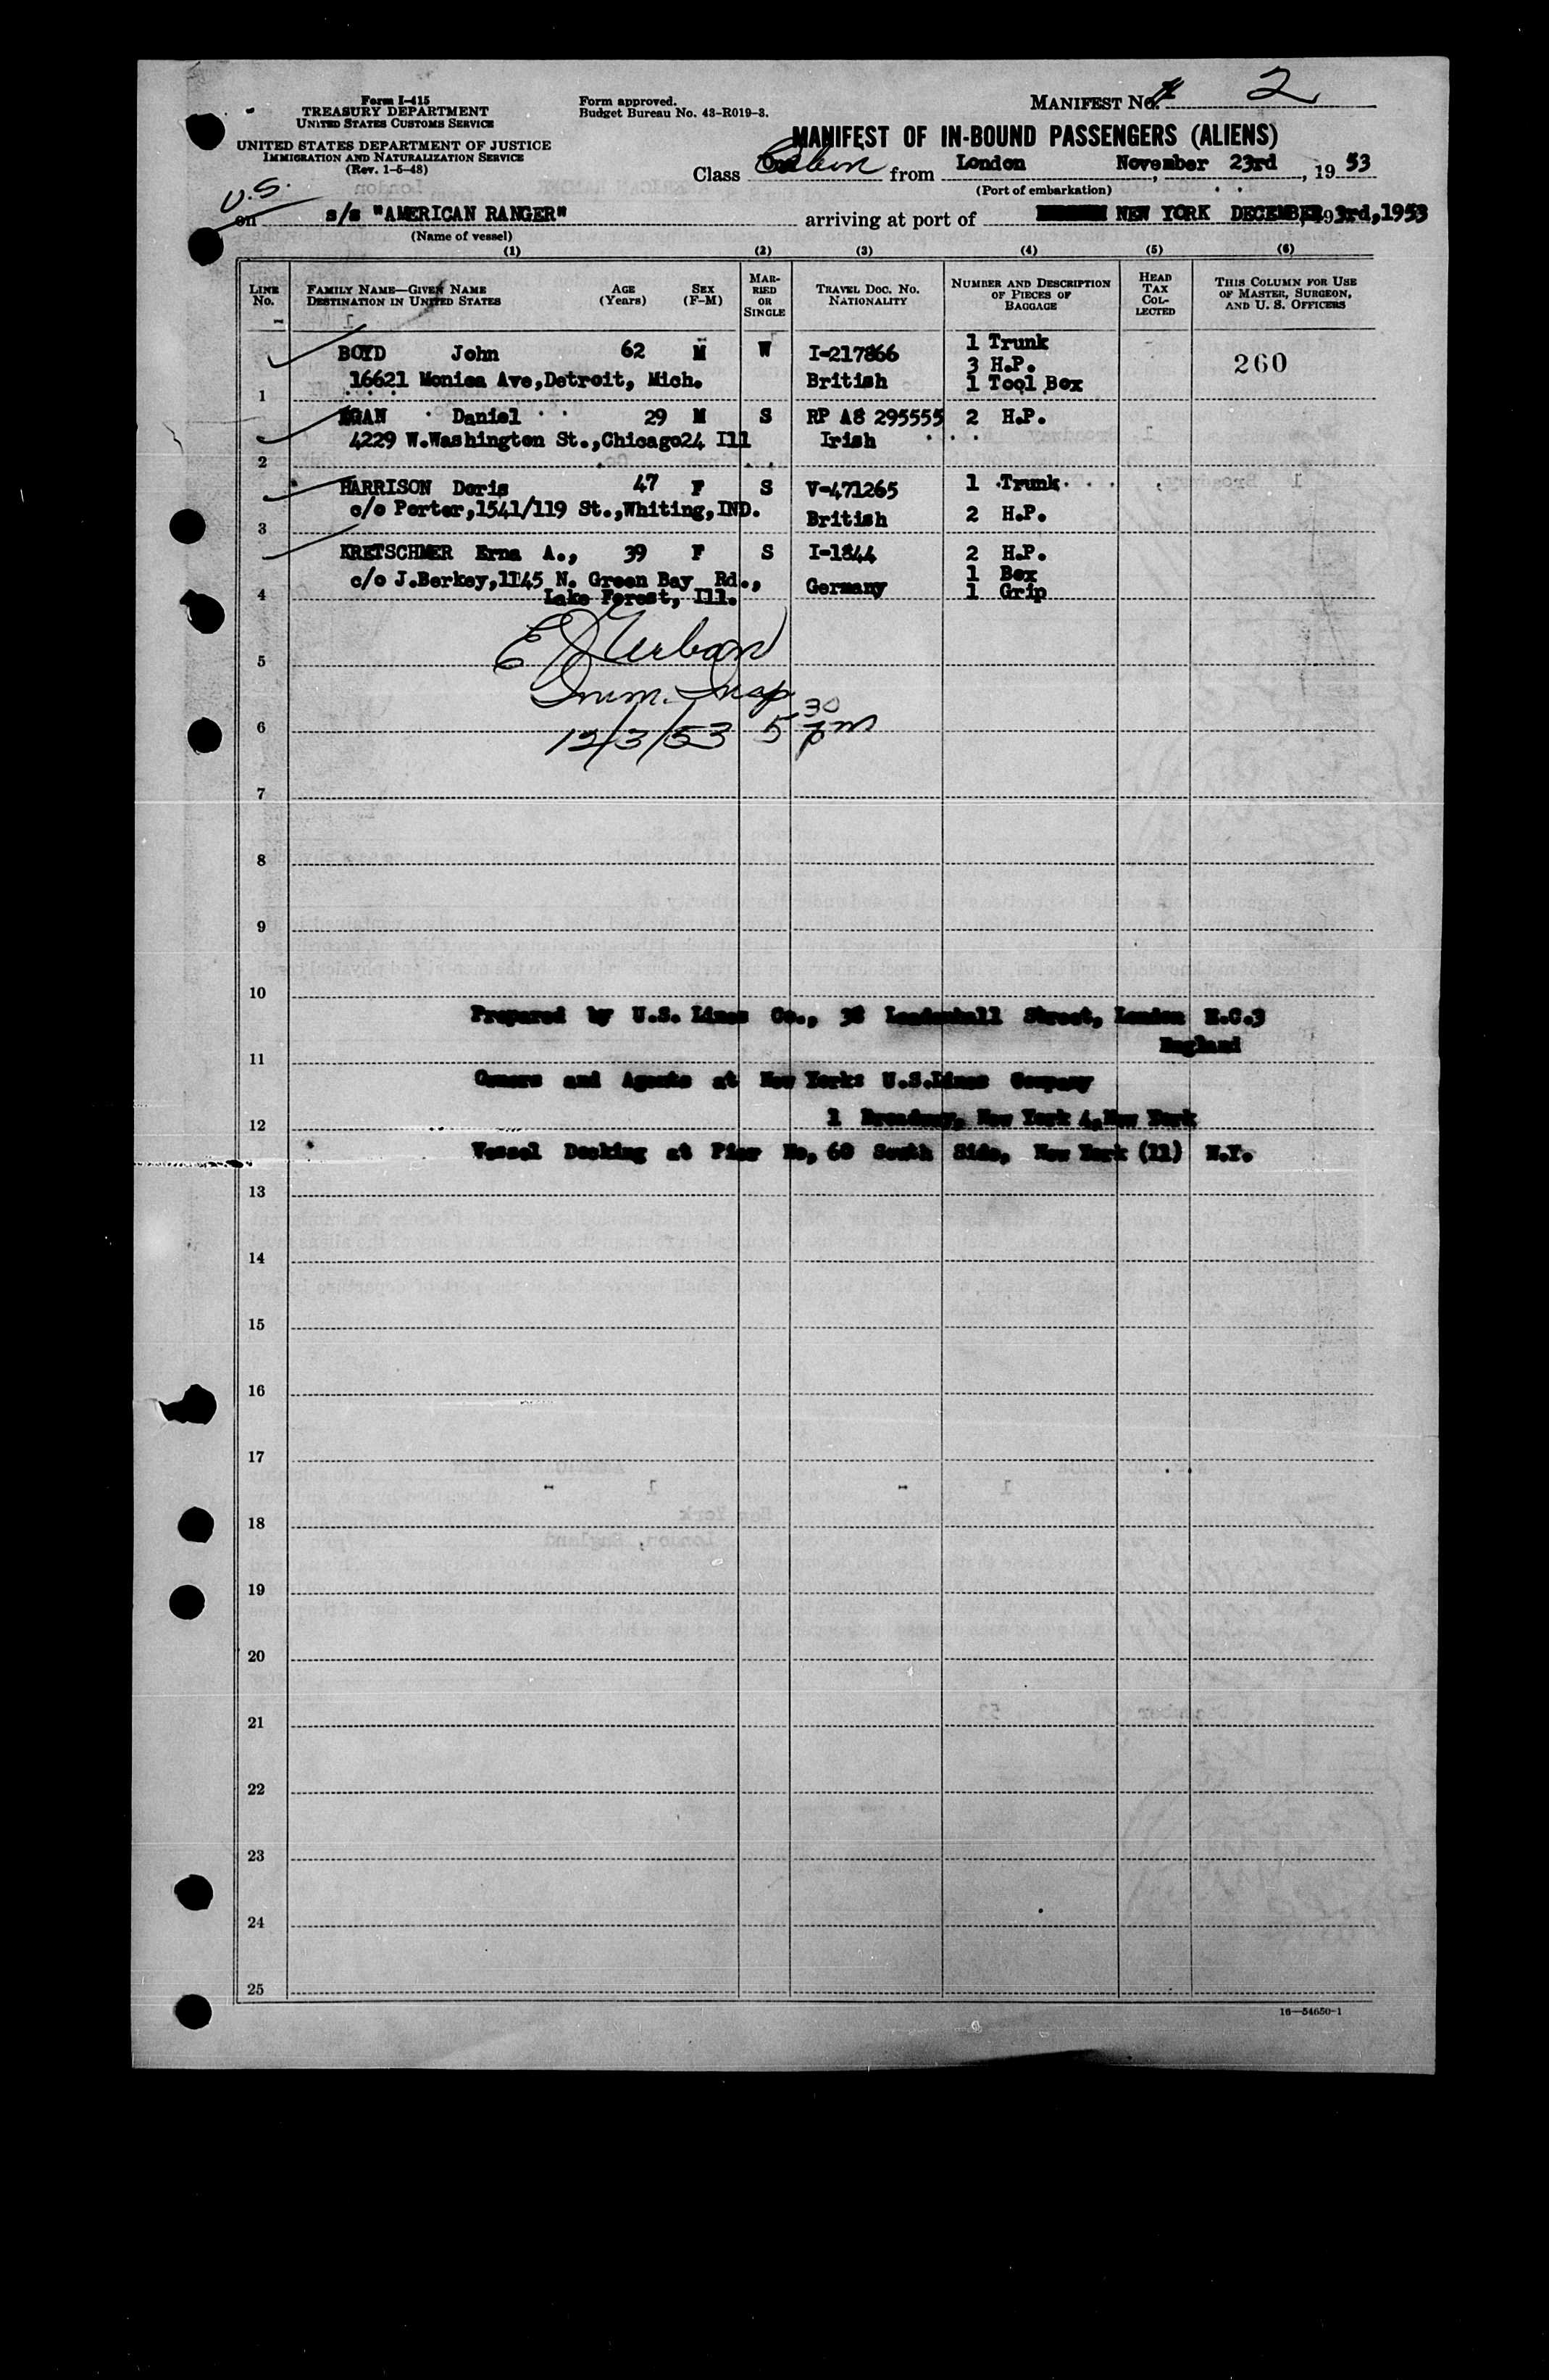 Form I-415
TREASURY DEPARTMENT
UNITED STATES CUSTOMS SERVICE
UNITED STATES DEPARTMENT OF JUSTICE
IMMIGRATION AND NATURALIZATION SERVICE
(Rev. 1-5-48)
Form approved.
Budget Bureau No. 43-R019-3.
MANIFEST No. 2
MANIFEST OF IN-BOUND PASSENGERS (ALIENS)
Class Cabin from London November 23rd, 19 53
(Port of embarkation)
U.S.
on s/s "AMERICAN RANGER" arriving at port of NEW YORK DECEMBER 3rd,1953
(Name of vessel)
(1) (2) (3) (4) (5) (6)
LINE No. FAMILY NAME—GIVEN NAME DESTINATION IN UNITED STATES AGE (Years) SEX (F-M) MARRIED OR SINGLE TRAVEL DOC. NO. NATIONALITY NUMBER AND DESCRIPTION OF PIECES OF BAGGAGE HEAD TAX COLLECTED THIS COLUMN FOR USE OF MASTER, SURGEON, AND U. S. OFFICERS
BOYD John 62 M W I-217866 1 Trunk 260
3 H.P.
1 16621 Monica Ave,Detroit, Mich. British 1 Tool Box
EGAN Daniel 29 M S RP A8 295555 2 H.P.
4229 W.Washington St.,Chicago24 Ill Irish
2
HARRISON Doris 47 F S V-471265 1 Trunk
c/o Porter,1541/119 St.,Whiting,IND. British 2 H.P.
3
KRETSCHMER Erna A., 39 F S I-1844 2 H.P.
c/o J.Berkey,1145 N. Green Bay Rd., Germany 1 Box
4 Lake Forest, Ill. 1 Grip
5
Imm. Insp.
6
12/3/53 5 30 pm
7
8
9
10
Prepared by U.S. Lines Co., 38 Leadenhall Street, London E.C.3
England
11
Owners and Agents at New York: U.S.Lines Company
1 Broadway, New York 4,New York
12
Vessel Docking at Pier No, 60 South Side, New York (11) N.Y.
13
14
15
16
17
18
19
20
21
22
23
24
25
16—54650-1